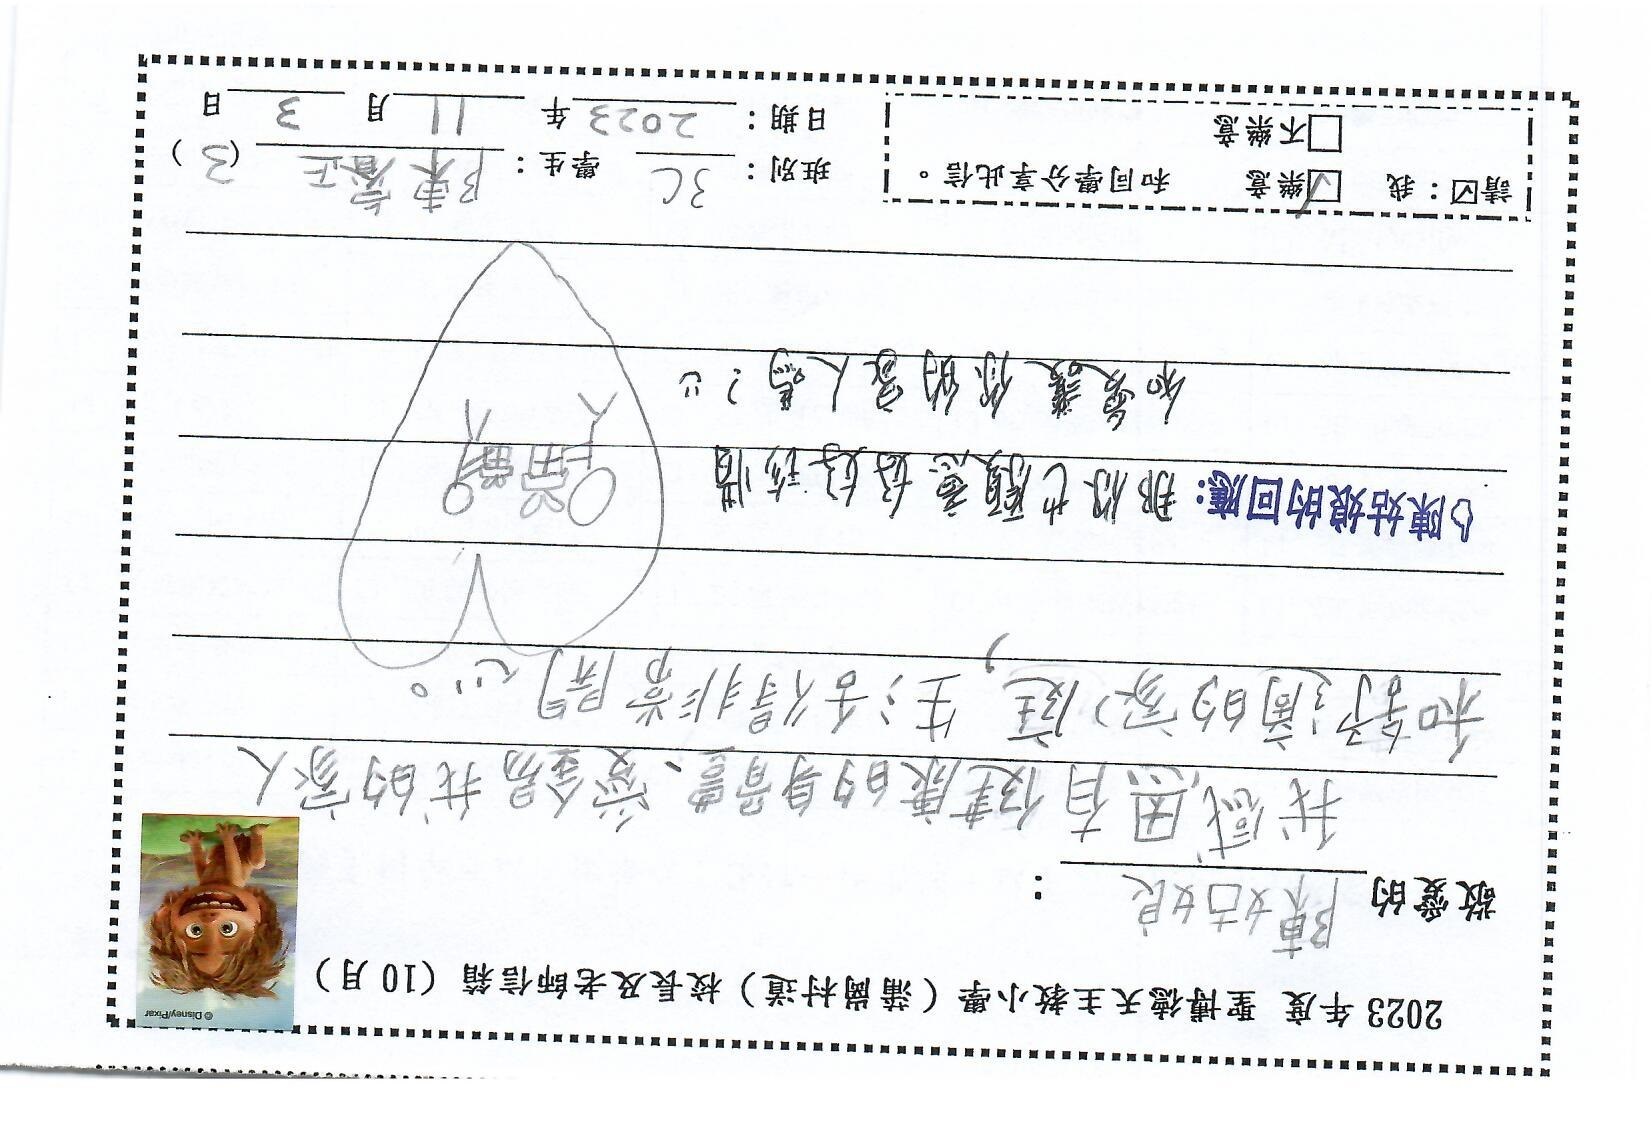 2023 年度 聖博德天主教小學（蒲崗村道）校長及老師信箱（10 月）
© Disney/Pixar
敬愛的 陳姑娘 ：
我感恩有健康的身體、愛錫我的家人
和舒適的家庭，生活得非常開心。
陳姑娘的回應：那你也願意好好珍惜
和愛護你的家人嗎？
請☑：我 ☑樂意 和同學分享此信。
□不樂意
班別： 3C 學生： 陳睿正 （3）
日期： 2023 年 11 月 3 日